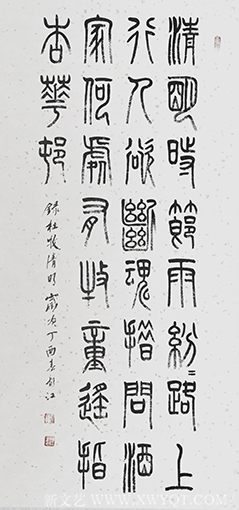 清明時節雨紛〻路上
行人欲斷魂借問酒
家何處有牧童遙指
杏華邨
錄杜牧清明 歲次丁酉春
新文艺 WWW.XWYOT.COM